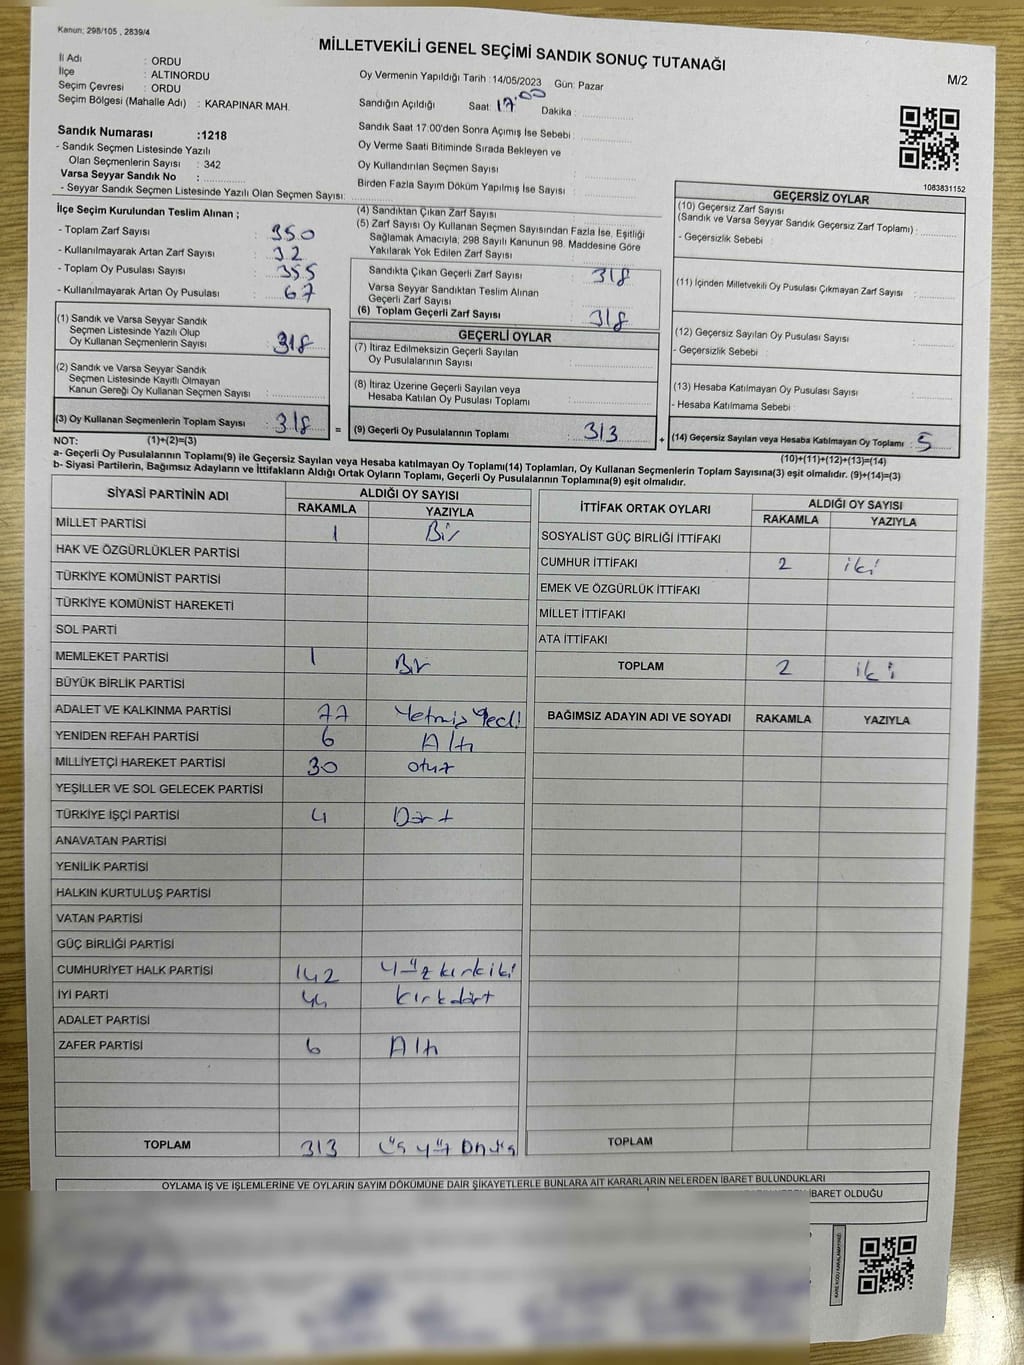 Kanun: 298/105 , 2839/4
MİLLETVEKİLİ GENEL SEÇİMİ SANDIK SONUÇ TUTANAĞI
M/2
İl Adı : ORDU
İlçe : ALTINORDU
Seçim Çevresi : ORDU
Seçim Bölgesi (Mahalle Adı) : KARAPINAR MAH.
Oy Vermenin Yapıldığı Tarih : 14/05/2023 Gün: Pazar
Sandığın Açıldığı Saat: 17:00 Dakika :
Sandık Numarası :1218
- Sandık Seçmen Listesinde Yazılı
Olan Seçmenlerin Sayısı : 342
Varsa Seyyar Sandık No :
- Seyyar Sandık Seçmen Listesinde Yazılı Olan Seçmen Sayısı:
Sandık Saat 17:00'den Sonra Açımış İse Sebebi :
Oy Verme Saati Bitiminde Sırada Bekleyen ve
Oy Kullandırılan Seçmen Sayısı :
Birden Fazla Sayım Döküm Yapılmış İse Sayısı :
1083831152
İlçe Seçim Kurulundan Teslim Alınan ;
- Toplam Zarf Sayısı : 350
- Kullanılmayarak Artan Zarf Sayısı : 32
- Toplam Oy Pusulası Sayısı : 355
- Kullanılmayarak Artan Oy Pusulası : 67
(1) Sandık ve Varsa Seyyar Sandık
Seçmen Listesinde Yazılı Olup
Oy Kullanan Seçmenlerin Sayısı : 318
(2) Sandık ve Varsa Seyyar Sandık
Seçmen Listesinde Kayıtlı Olmayan
Kanun Gereği Oy Kullanan Seçmen Sayısı :
(3) Oy Kullanan Seçmenlerin Toplam Sayısı : 318
(4) Sandıktan Çıkan Zarf Sayısı :
(5) Zarf Sayısı Oy Kullanan Seçmen Sayısından Fazla İse, Eşitliği
Sağlamak Amacıyla, 298 Sayılı Kanunun 98. Maddesine Göre
Yakılarak Yok Edilen Zarf Sayısı :
Sandıkta Çıkan Geçerli Zarf Sayısı : 318
Varsa Seyyar Sandıktan Teslim Alınan
Geçerli Zarf Sayısı :
(6) Toplam Geçerli Zarf Sayısı : 318
GEÇERLİ OYLAR
(7) İtiraz Edilmeksizin Geçerli Sayılan
Oy Pusulalarının Sayısı :
(8) İtiraz Üzerine Geçerli Sayılan veya
Hesaba Katılan Oy Pusulası Toplamı :
= (9) Geçerli Oy Pusulalarının Toplamı : 313
GEÇERSİZ OYLAR
(10) Geçersiz Zarf Sayısı
(Sandık ve Varsa Seyyar Sandık Geçersiz Zarf Toplamı) :
- Geçersizlik Sebebi :
(11) İçinden Milletvekili Oy Pusulası Çıkmayan Zarf Sayısı :
(12) Geçersiz Sayılan Oy Pusulası Sayısı :
- Geçersizlik Sebebi :
(13) Hesaba Katılmayan Oy Pusulası Sayısı :
- Hesaba Katılmama Sebebi :
+ (14) Geçersiz Sayılan veya Hesaba Katılmayan Oy Toplamı : 5
NOT: (1)+(2)=(3)
(10)+(11)+(12)+(13)=(14)
a- Geçerli Oy Pusulalarının Toplamı(9) ile Geçersiz Sayılan veya Hesaba katılmayan Oy Toplamı(14) Toplamları, Oy Kullanan Seçmenlerin Toplam Sayısına(3) eşit olmalıdır. (9)+(14)=(3)
b- Siyasi Partilerin, Bağımsız Adayların ve İttifakların Aldığı Ortak Oyların Toplamı, Geçerli Oy Pusulalarının Toplamına(9) eşit olmalıdır.
SİYASİ PARTİNİN ADI ALDIĞI OY SAYISI
RAKAMLA YAZIYLA
MİLLET PARTİSİ 1 Bir
HAK VE ÖZGÜRLÜKLER PARTİSİ
TÜRKİYE KOMÜNİST PARTİSİ
TÜRKİYE KOMÜNİST HAREKETİ
SOL PARTİ
MEMLEKET PARTİSİ 1 Bir
BÜYÜK BİRLİK PARTİSİ
ADALET VE KALKINMA PARTİSİ 77 Yetmiş Yedi
YENİDEN REFAH PARTİSİ 6 Altı
MİLLİYETÇİ HAREKET PARTİSİ 30 otuz
YEŞİLLER VE SOL GELECEK PARTİSİ
TÜRKİYE İŞÇİ PARTİSİ 4 Dört
ANAVATAN PARTİSİ
YENİLİK PARTİSİ
HALKIN KURTULUŞ PARTİSİ
VATAN PARTİSİ
GÜÇ BİRLİĞİ PARTİSİ
CUMHURİYET HALK PARTİSİ 142 yüz kırkiki
İYİ PARTİ 44 kırkdört
ADALET PARTİSİ
ZAFER PARTİSİ 6 Altı
TOPLAM 313 üç yüz Onüç
İTTİFAK ORTAK OYLARI ALDIĞI OY SAYISI
RAKAMLA YAZIYLA
SOSYALİST GÜÇ BİRLİĞİ İTTİFAKI
CUMHUR İTTİFAKI 2 iki
EMEK VE ÖZGÜRLÜK İTTİFAKI
MİLLET İTTİFAKI
ATA İTTİFAKI
TOPLAM 2 iki
BAĞIMSIZ ADAYIN ADI VE SOYADI RAKAMLA YAZIYLA
TOPLAM
OYLAMA İŞ VE İŞLEMLERİNE VE OYLARIN SAYIM DÖKÜMÜNE DAİR ŞİKAYETLERLE BUNLARA AİT KARARLARIN NELERDEN İBARET BULUNDUKLARI
İBARET OLDUĞU